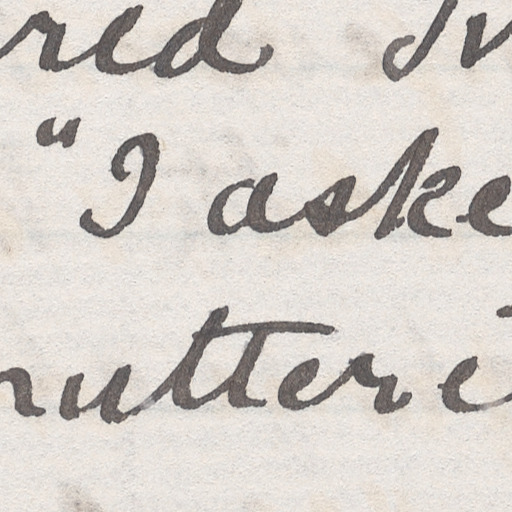 red
"I aske
utteri